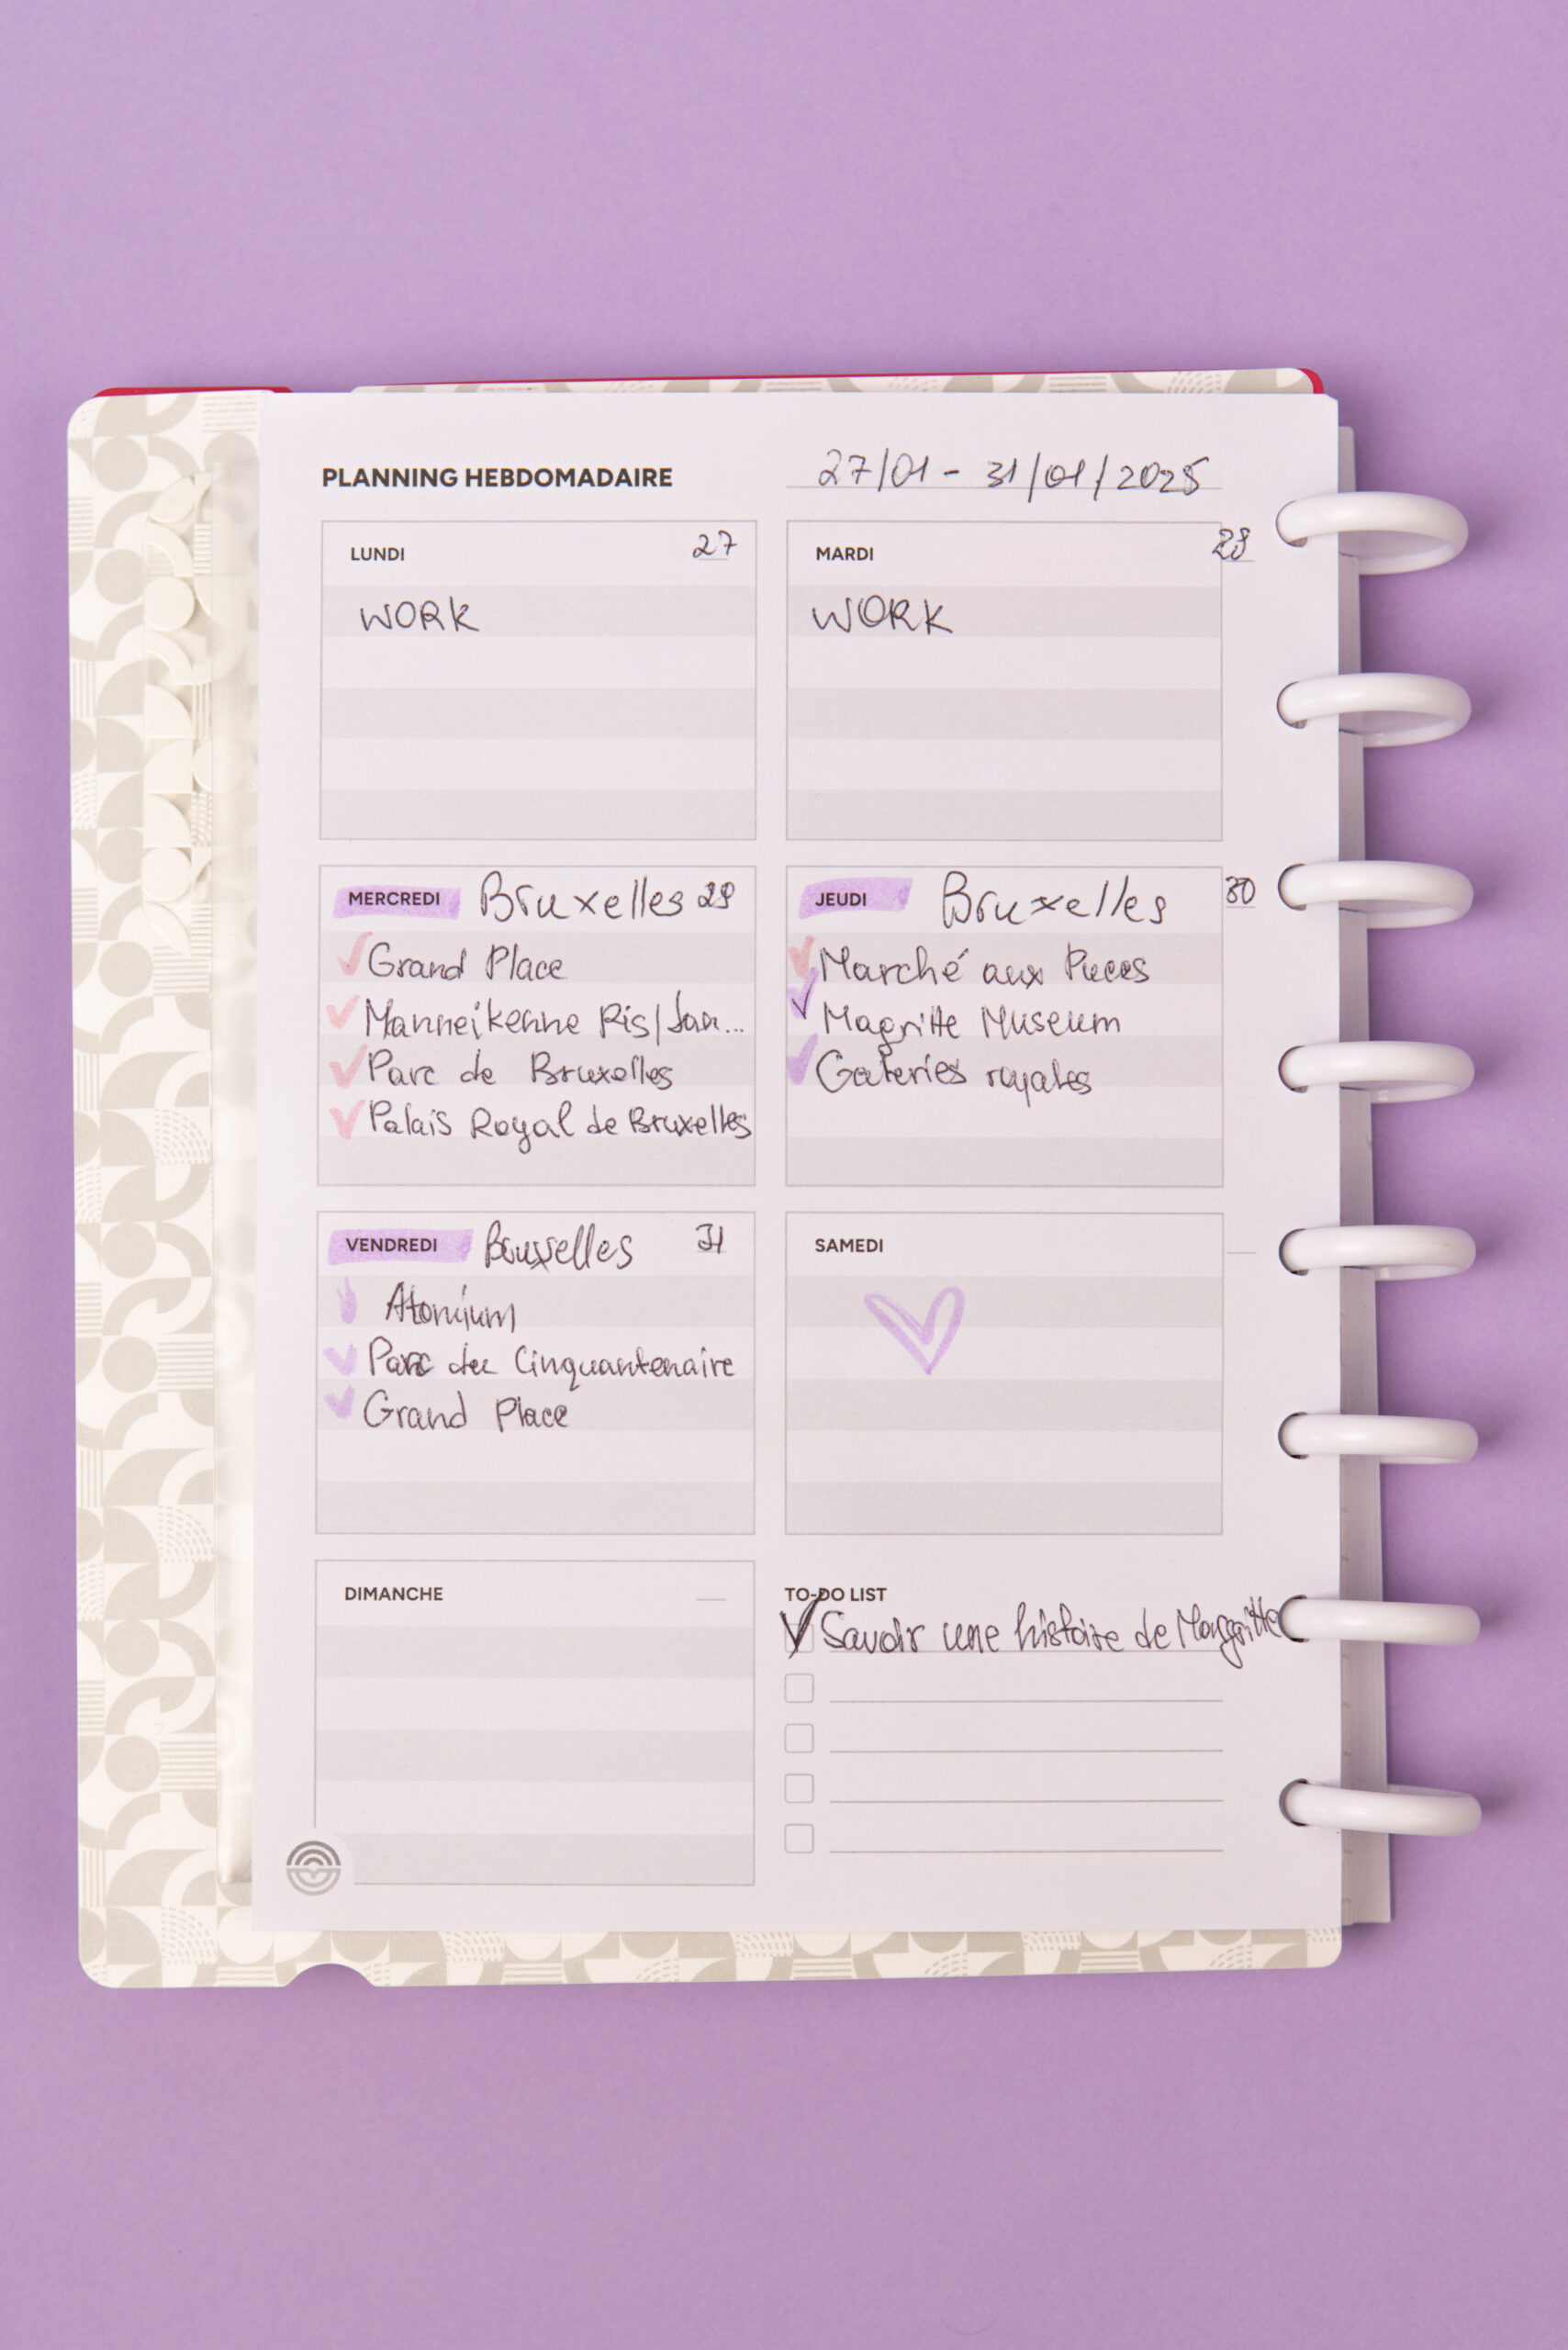 PLANNING HEBDOMADAIRE 27/01 - 31/01/2025
LUNDI 27
WORK
MARDI 28
WORK
MERCREDI Bruxelles 29
Grand Place
Manneikenne Pis/Jan...
Parc de Bruxelles
Palais Royal de Bruxelles
JEUDI Bruxelles 30
Marché aux Puces
Magritte Museum
Galeries royales
VENDREDI Bruxelles 31
Atomium
Parc du Cinquantenaire
Grand Place
SAMEDI
DIMANCHE
TO-DO LIST
Savoir une histoire de Margritte